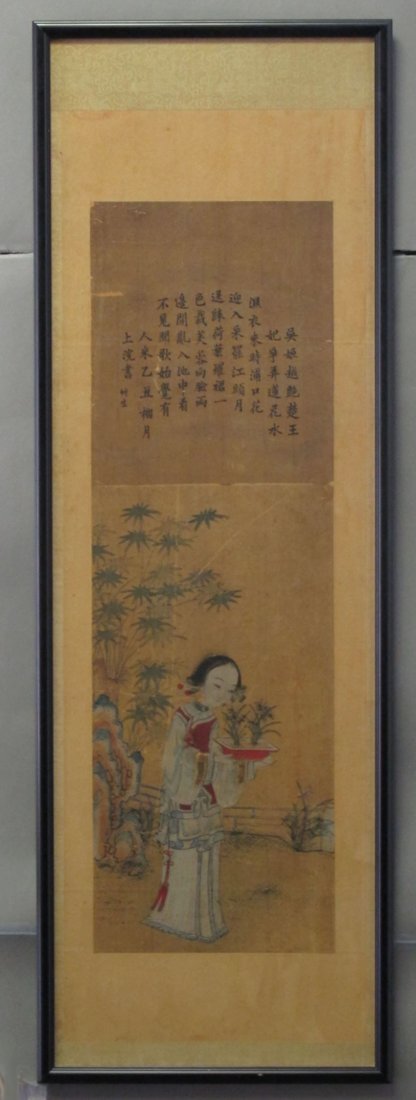 吳姬越艷楚王
妃爭弄蓮花水
濕衣來時浦口花
迎入采罷江頭月
送歸荷葉羅裙一
色裁芙蓉向臉兩
邊開亂入池中看
不見聞歌始覺有
人來乙丑榴月
上浣書 竹生